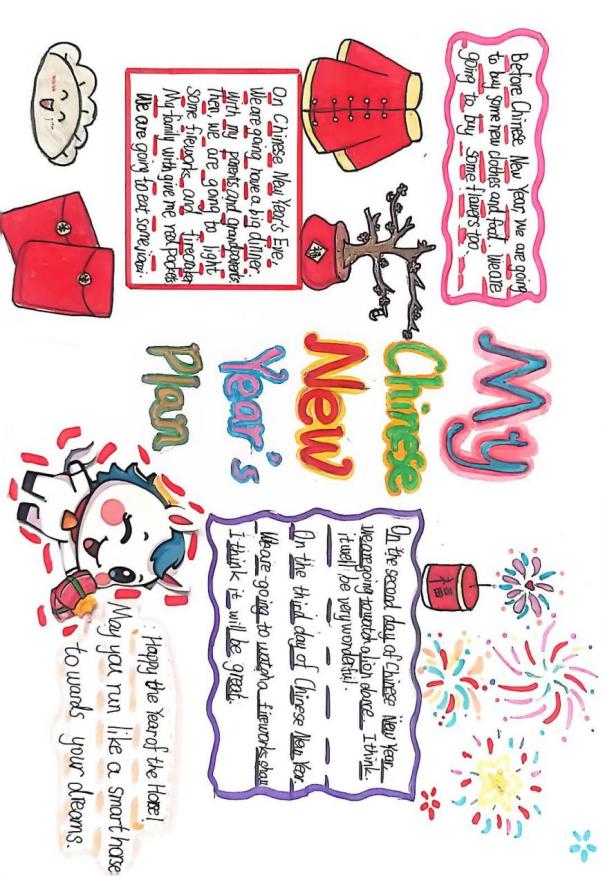 My
Chinese
New
Year's
Plan
Before Chinese New Year, we are going
to buy some new clothes and food. We are
going to buy some flowers too.
On Chinese New Year's Eve,
We are going have a big dinner
with my parents and grandparents.
Then we are going to light
some fireworks and firecracker
My family with give me red pockets
We are going to eat some jiaozi.
On the second day of Chinese New Year,
We are going to watch a lion dance. I think
it will be very wonderful.
On the third day of Chinese New Year.
We are going to watch a fireworks show
I think it will be great.
福
Happy the Year of the Horse!
May you run like a smart horse
towads your dreams.